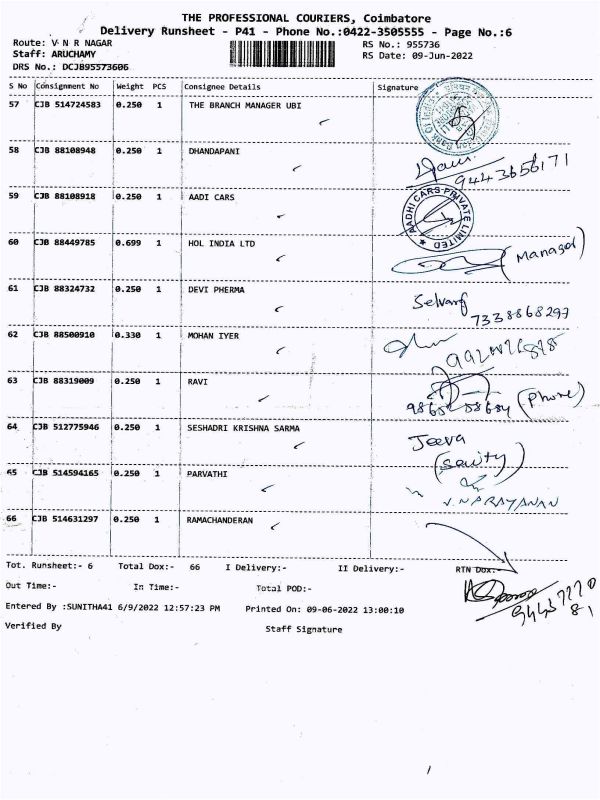 THE PROFESSIONAL COURIERS, Coimbatore
Delivery Runsheet - P41 - Phone No.:0422-3505555 - Page No.:6
Route: V N R NAGAR
RS No.: 955736
Staff: ARUCHAMY
RS Date: 09-Jun-2022
DRS No.: DCJB95573606
S No Consignment No Weight PCS Consignee Details Signature
57 CJB 514724583 0.250 1 THE BRANCH MANAGER UBI
58 CJB 88108948 0.250 1 DHANDAPANI
9443656171
59 CJB 88108918 0.250 1 AADI CARS
AADHI CARS PRIVATE LIMITED
60 CJB 88449785 0.699 1 HOL INDIA LTD
61 CJB 88324732 0.250 1 DEVI PHERMA
7338868297
62 CJB 88500910 0.330 1 MOHAN IYER
63 CJB 88319009 0.250 1 RAVI
(Phone)
64 CJB 512775946 0.250 1 SESHADRI KRISHNA SARMA
Jeeva
65 CJB 514594165 0.250 1 PARVATHI
V.NARAYANAN
66 CJB 514631297 0.250 1 RAMACHANDERAN
Tot. Runsheet:- 6 Total Dox:- 66 I Delivery:- II Delivery:- RTN Dox:-
Out Time:- In Time:- Total POD:-
Entered By :SUNITHA41 6/9/2022 12:57:23 PM Printed On: 09-06-2022 13:00:10
Verified By Staff Signature